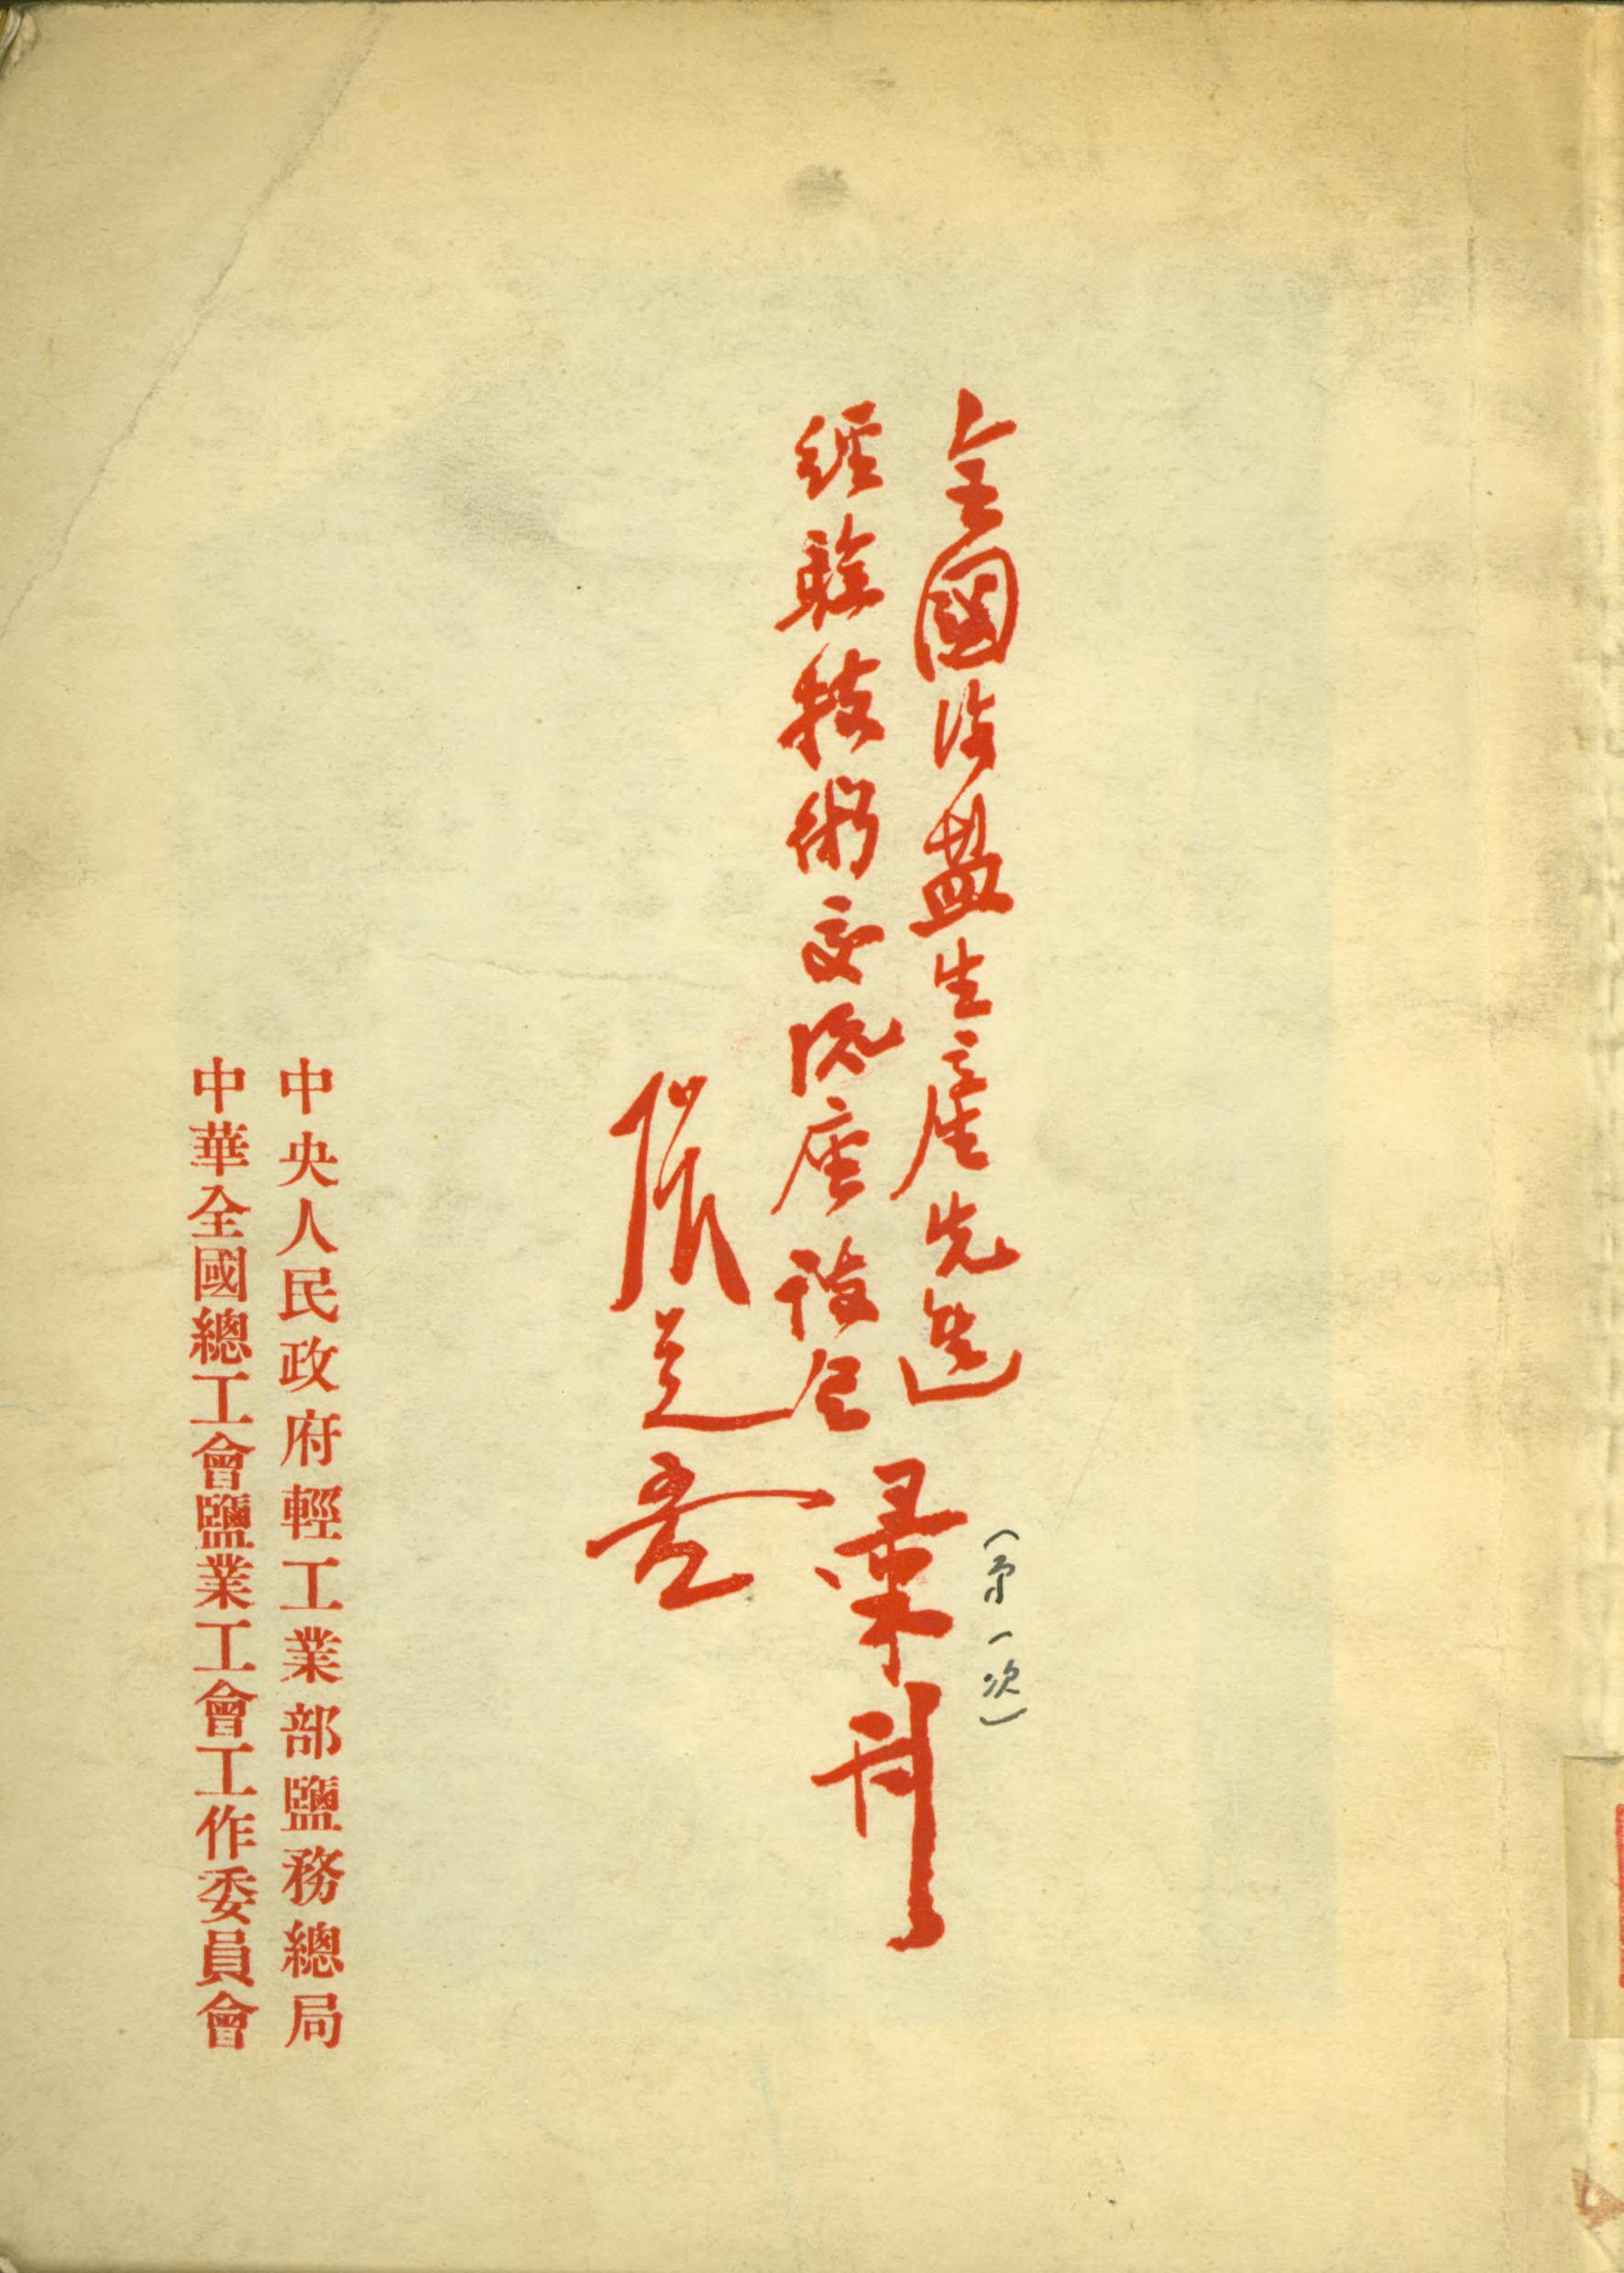 全國海盐生產先進
經驗技術交流座談会
彙刊
(第一次)
張芝
中央人民政府輕工業部鹽務總局
中華全國總工會鹽業工會工作委員會